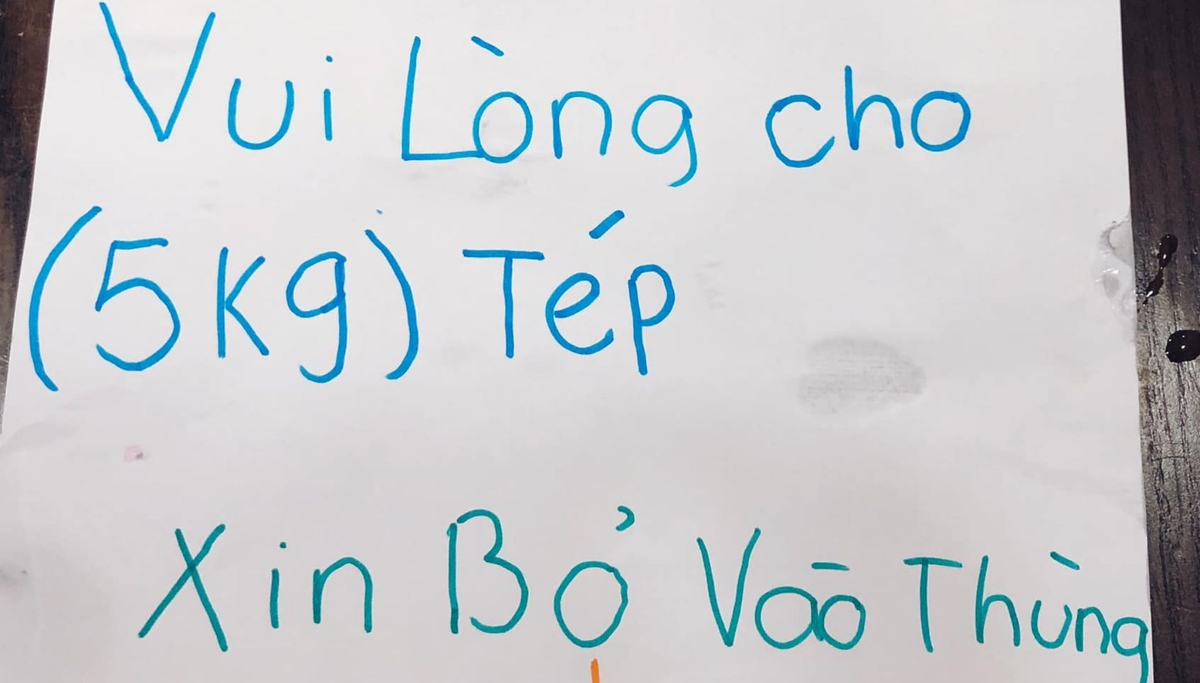 Vui Lòng cho
(5kg) Tép
Xin Bỏ Vào Thùng